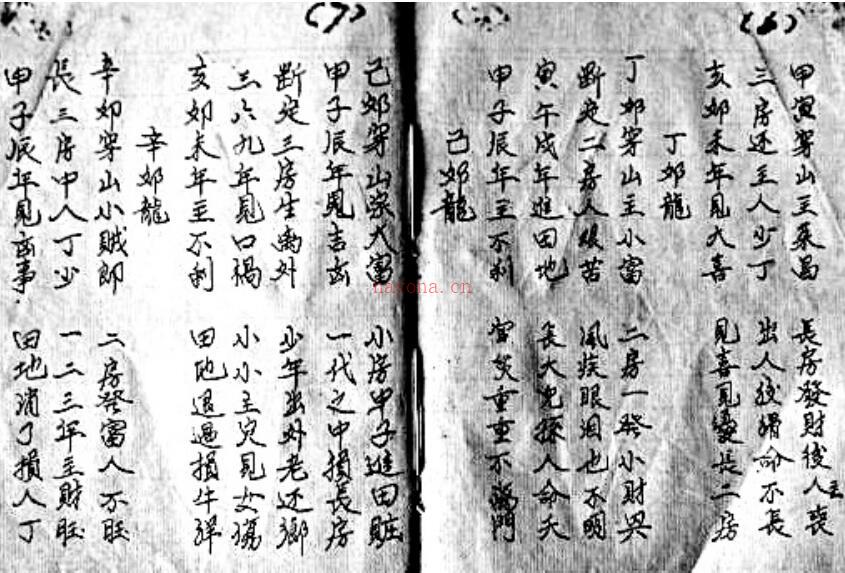 (6)
甲寅穿山主荣昌 長房發財後人丧
三房还主人少丁 出人狡猾命不長
亥卯未年見大喜 見喜見变長二房
丁卯龍
丁卯穿山主小富 二房一癸小財兴
断定二房人很苦 風疾眼泪也不明
寅午戌年進田地 長大児孫人命夭
甲子辰年主不利 官災重重不
己卯龍
(7)
己卯穿山深大富 小房甲子進田
甲子辰年見吉 一代之中損長房
断定三房生离外 少年出外老还鄉
三六九年見口禍 小小主灾見女
亥卯未年主不利 田地退退損牛
辛卯龍
辛卯穿山小贼郎 二房癸富人不旺
長三房中人丁少 一二三年主財旺
甲子辰年見 事 田地消了損人丁
nayona.cn